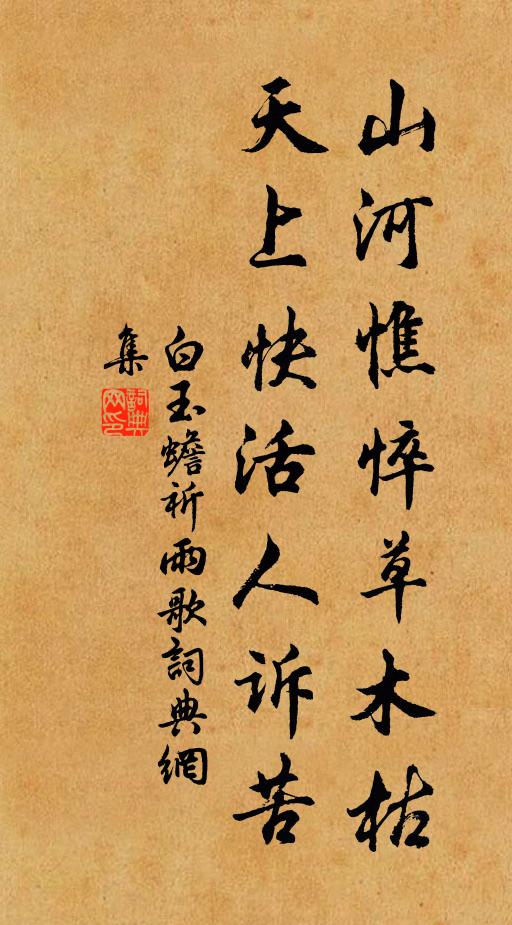 山河憔悴草木枯
天上快活人诉苦
白玉蟾祈雨歌詞典網
集
詞典網印